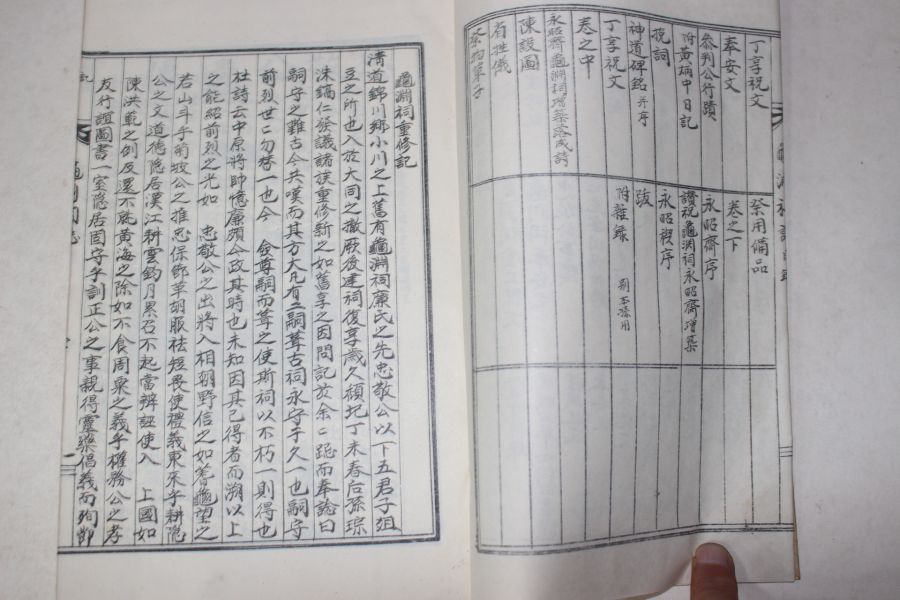 丁享祝文
奉安文
參判公行蹟
附黃蝻中日記
神道碑銘 并序
挽詞
丁享祝文
卷之中
永昭齋龜淵祠增築落成詩
陳設圖
省牲儀
祭物單子
祭用備品
卷之下
永昭齋序
讚祝龜淵祠永昭齋增築
永昭禊序
跋
附雜錄
龜淵祠重修記
清道錦川鄉小川之上舊有龜淵祠廉氏之先忠敬公以下五君子俎
豆之所也入於大同之撤厥後建祠復享歲久頹圮丁未春后孫琮
洙鎬仁發議諸族重修新之如舊享之因問記於余二跽而奉讀曰
嗣守之難古今共嘆而其方大凡有二嗣葺古祠永守于久一也嗣守
前烈世二勿替一也今 僉尊嗣而葺之使斯祠以不朽一則得也
杜詩云中原將帥憶廉頗公政其時也未知因其已得者而溯以上
之能紹前烈之光如 忠敬公之出將入相朝野信之如蓍龜望之
若山斗乎前坡公之推忠保節革胡服祛短畏使禮義東來乎耕隱
公之文道德隱居漢江耕雲釣月累召不起當辨誣使入 上國如
陳洪範之刎反還不就黃海之除如不食周粟之義乎權務公之孝
友行誼圖書一室隱居固守乎訓正公之事親得靈藥倡義而殉節